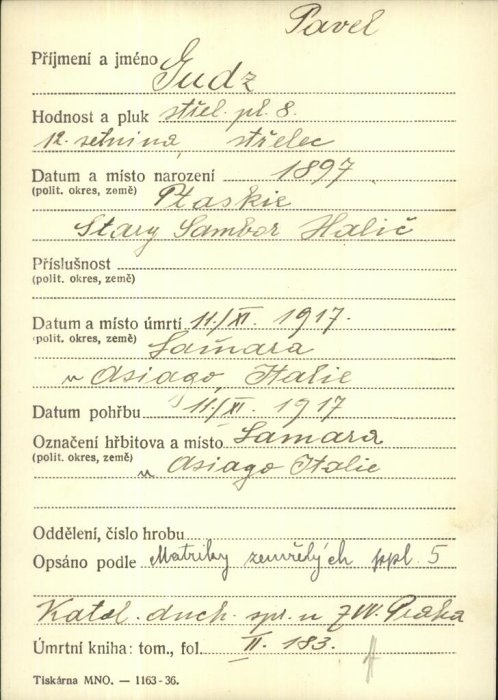 Pavel
Příjmení a jméno Gudz
Hodnost a pluk střel. pl. 8.
12. setnina, střelec
Datum a místo narození 1897
(polit. okres, země) Ptaskie
Stary Sambor Halič
Příslušnost
(polit. okres, země)
Datum a místo úmrtí 11./XI. 1917.
(polit. okres, země) Samara
u Asiago, Italie
Datum pohřbu 11./XI. 1917
Označení hřbitova a místo Samara
(polit. okres, země) u Asiago Italie
Oddělení, číslo hrobu
Opsáno podle Matriky zemřelých ppl. 5
Katol. duch. spr. u ZVV. Praha
Úmrtní kniha: tom., fol. II. 183.
Tiskárna MNO. — 1163-36.